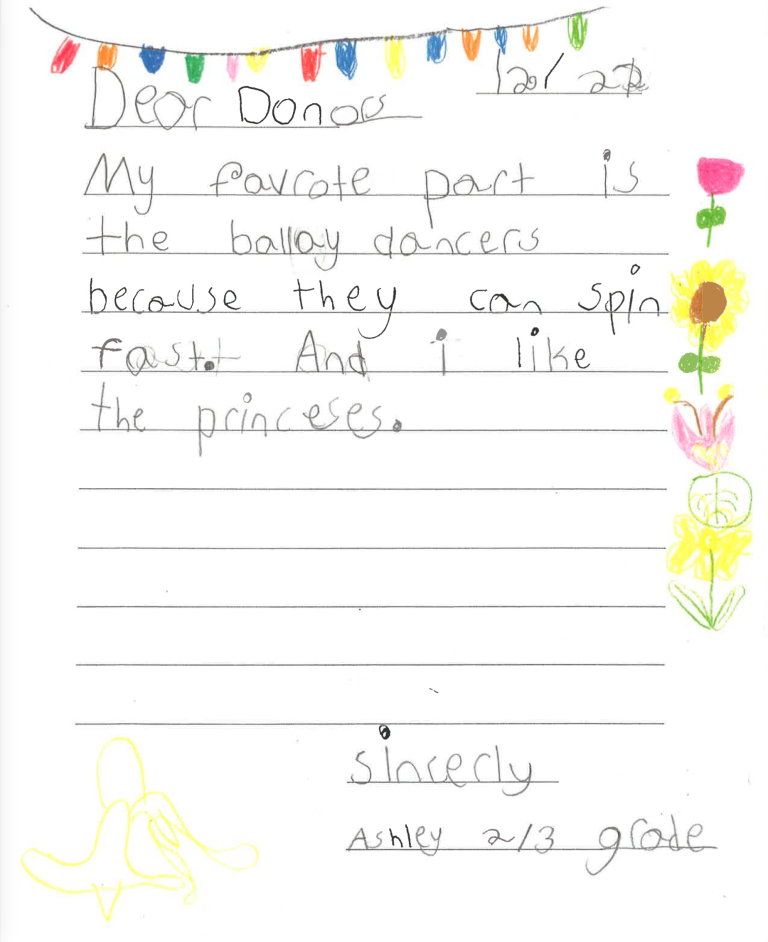 12/ 22
Dear Donor
My favrote part is
the ballay dancers
because they can spin
fast. And i like
the princeses.
sincerly
Ashley 2/3 grade